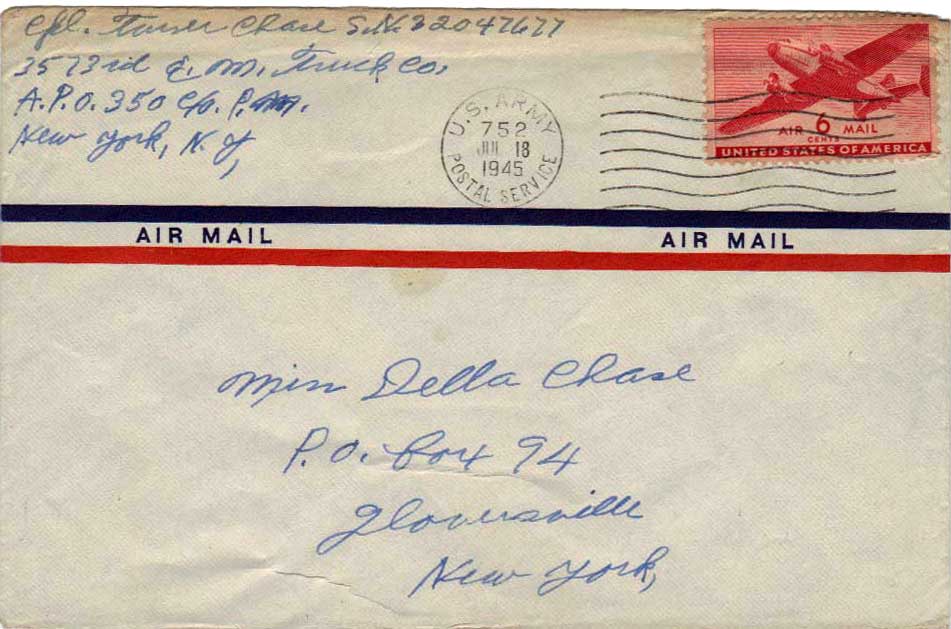 Cpl. Turner Chase S.N. 32047677
3573rd Q. M. Truck Co.
A.P.O. 350 c/o. P.M.
New York, N. Y,
U.S. ARMY
752
JUL 18
1945
POSTAL SERVICE
AIR 6 MAIL
CENTS
UNITED STATES OF AMERICA
AIR MAIL AIR MAIL
Miss Della Chase
P.O. Box 94
Gloversville
New York,